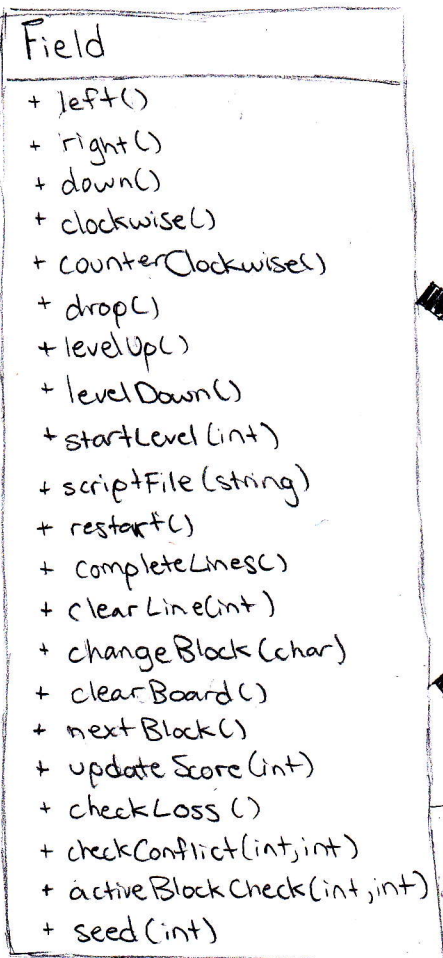 Field
+ left()
+ right()
+ down()
+ clockwise()
+ counterClockwise()
+ drop()
+ levelUp()
+ levelDown()
+ startLevel(int)
+ scriptFile(string)
+ restart()
+ completeLines()
+ clearLine(int)
+ changeBlock(char)
+ clearBoard()
+ nextBlock()
+ updateScore(int)
+ checkLoss()
+ checkConflict(int,int)
+ activeBlockCheck(int,int)
+ seed(int)